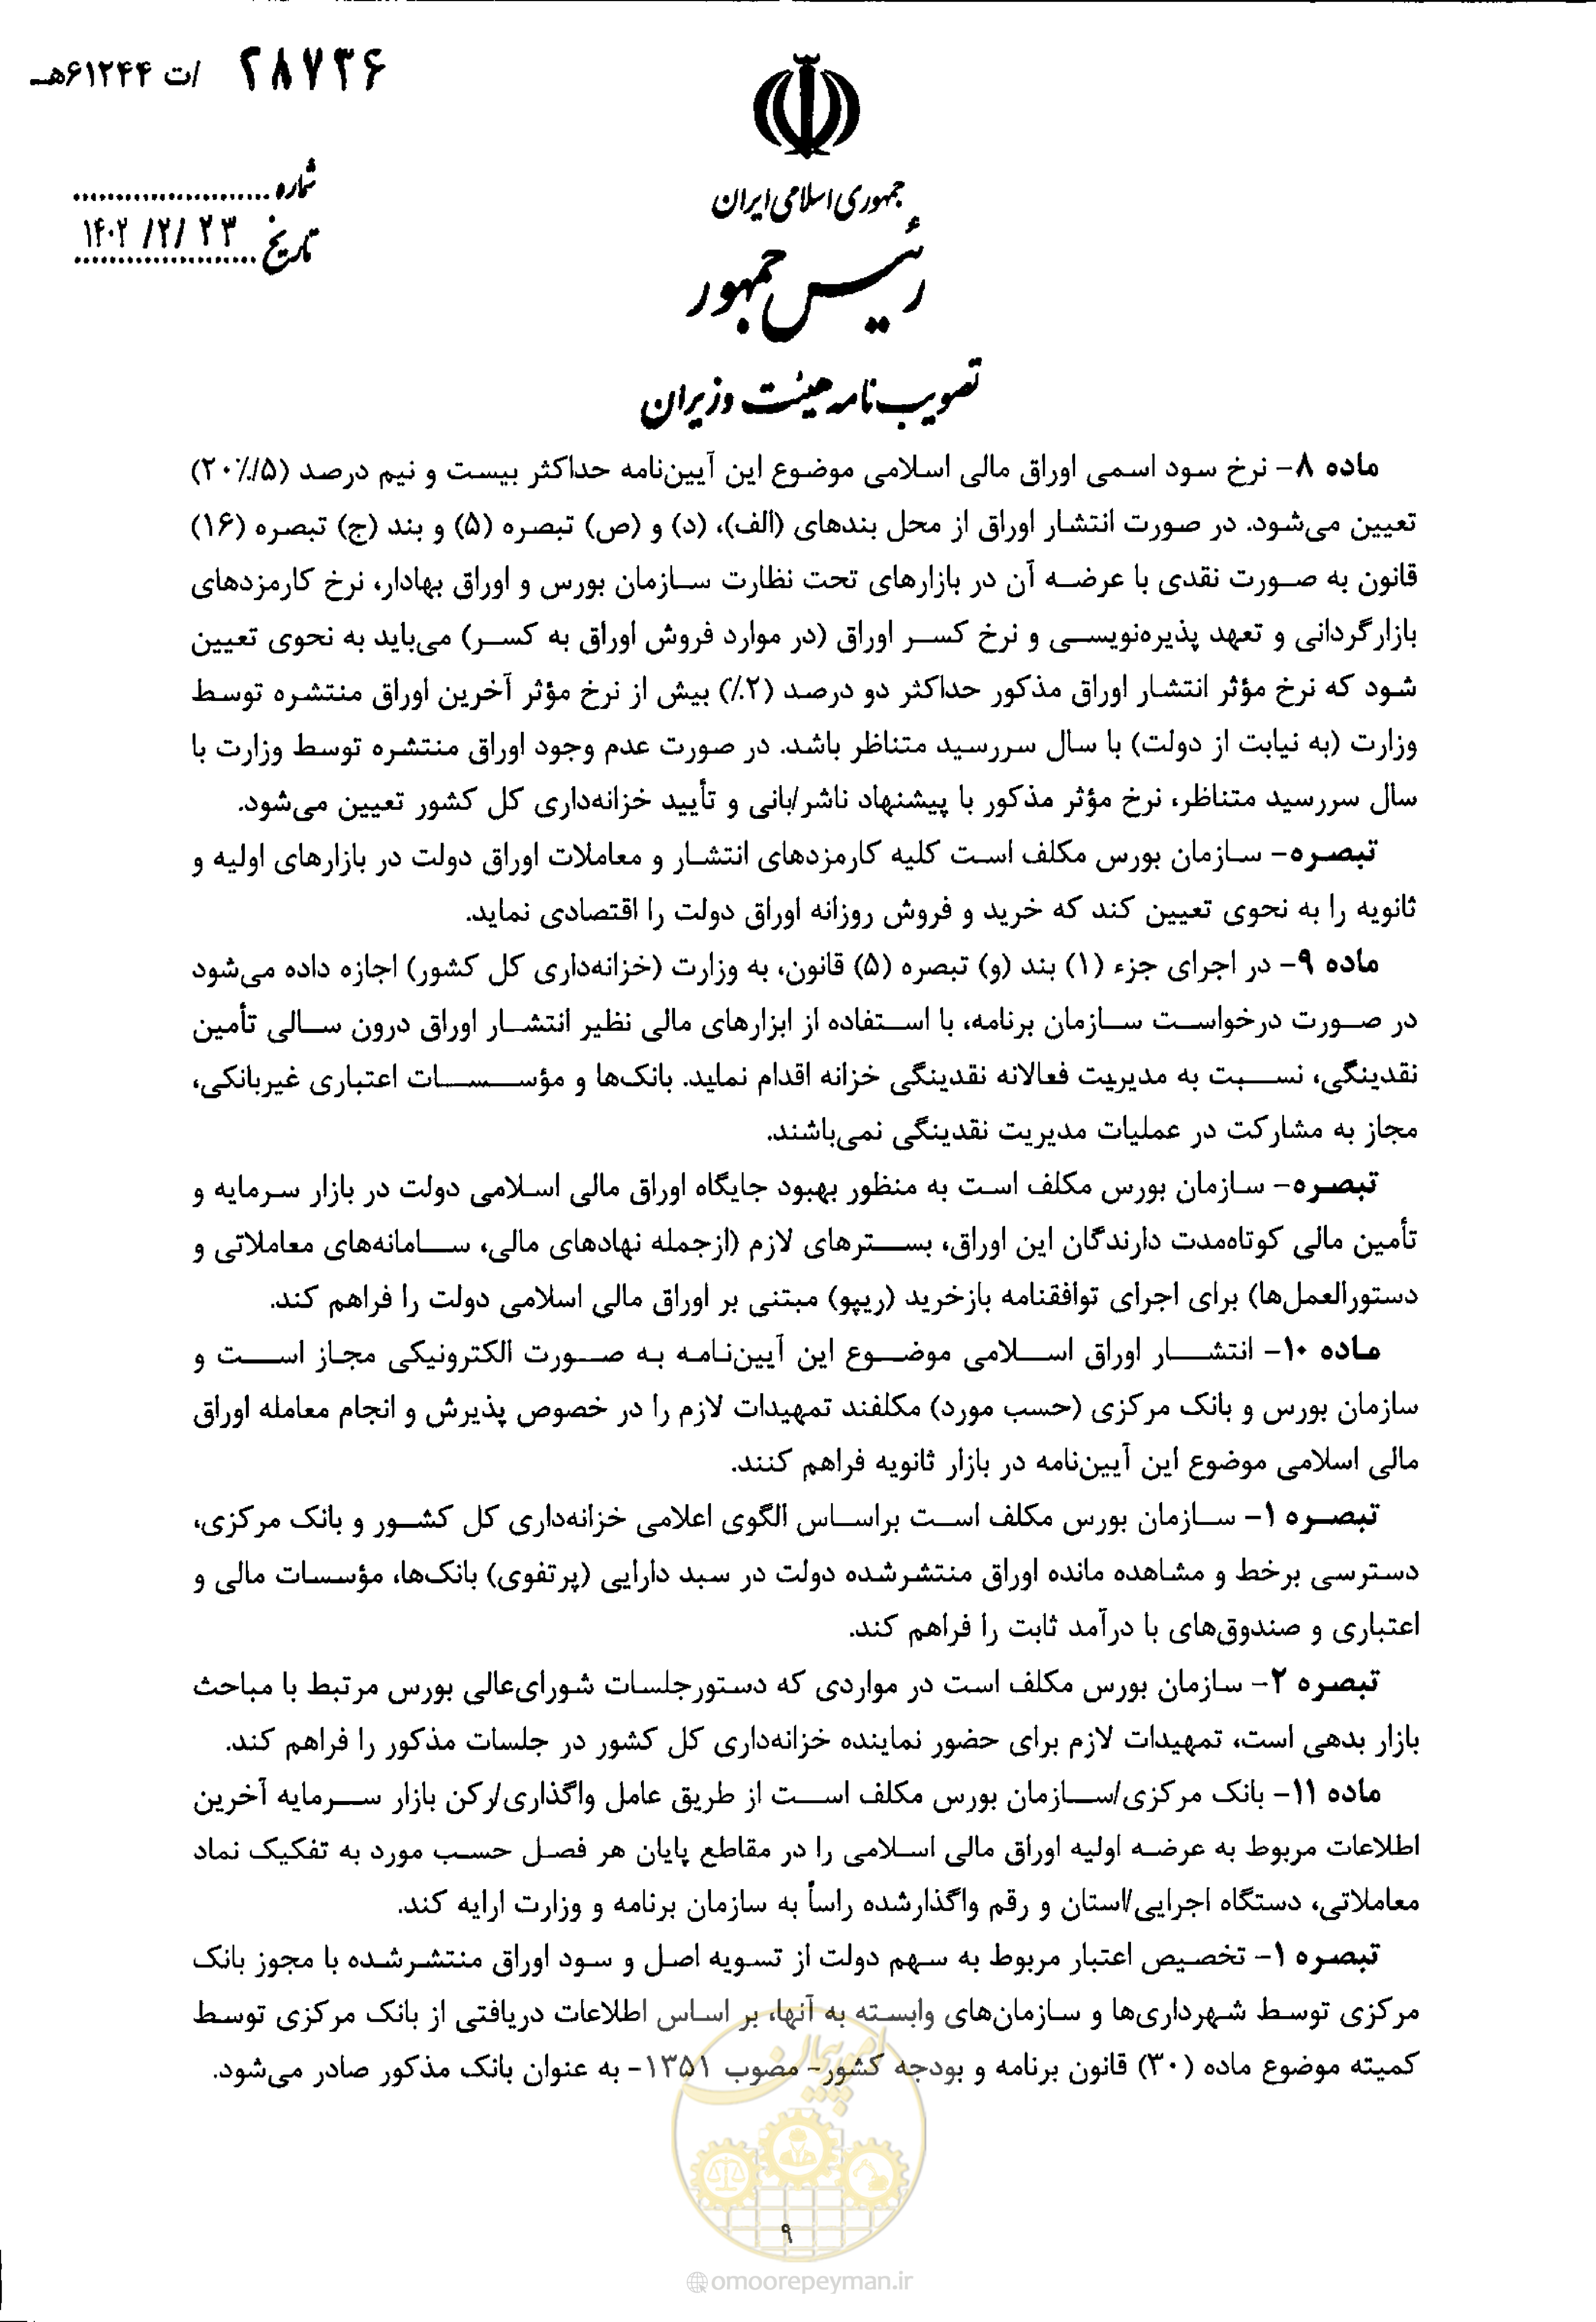 ۲۸۷۳۶ /ت ۶۱۲۴۴هـ
جمهوری اسلامی ایران
رئیس جمهور
شماره
تاریخ ۱۴۰۲/۲/۲۳
تصویب‌نامه هیئت وزیران
ماده ۸- نرخ سود اسمی اوراق مالی اسلامی موضوع این آیین‌نامه حداکثر بیست و نیم درصد (۲۰٪/۵)
تعیین می‌شود. در صورت انتشار اوراق از محل بندهای (الف)، (د) و (ص) تبصره (۵) و بند (ج) تبصره (۱۶)
قانون به صورت نقدی با عرضه آن در بازارهای تحت نظارت سازمان بورس و اوراق بهادار، نرخ کارمزدهای
بازارگردانی و تعهد پذیره‌نویسی و نرخ کسر اوراق (در موارد فروش اوراق به کسر) می‌باید به نحوی تعیین
شود که نرخ مؤثر انتشار اوراق مذکور حداکثر دو درصد (۲٪) بیش از نرخ مؤثر آخرین اوراق منتشره توسط
وزارت (به نیابت از دولت) با سال سررسید متناظر باشد. در صورت عدم وجود اوراق منتشره توسط وزارت با
سال سررسید متناظر، نرخ مؤثر مذکور با پیشنهاد ناشر/بانی و تأیید خزانه‌داری کل کشور تعیین می‌شود.
تبصره- سازمان بورس مکلف است کلیه کارمزدهای انتشار و معاملات اوراق دولت در بازارهای اولیه و
ثانویه را به نحوی تعیین کند که خرید و فروش روزانه اوراق دولت را اقتصادی نماید.
ماده ۹- در اجرای جزء (۱) بند (و) تبصره (۵) قانون، به وزارت (خزانه‌داری کل کشور) اجازه داده می‌شود
در صورت درخواست سازمان برنامه، با استفاده از ابزارهای مالی نظیر انتشار اوراق درون سالی تأمین
نقدینگی، نسبت به مدیریت فعالانه نقدینگی خزانه اقدام نماید. بانک‌ها و مؤسسات اعتباری غیربانکی،
مجاز به مشارکت در عملیات مدیریت نقدینگی نمی‌باشند.
تبصره- سازمان بورس مکلف است به منظور بهبود جایگاه اوراق مالی اسلامی دولت در بازار سرمایه و
تأمین مالی کوتاه‌مدت دارندگان این اوراق، بسترهای لازم (ازجمله نهادهای مالی، سامانه‌های معاملاتی و
دستورالعمل‌ها) برای اجرای توافقنامه بازخرید (ریپو) مبتنی بر اوراق مالی اسلامی دولت را فراهم کند.
ماده ۱۰- انتشار اوراق اسلامی موضوع این آیین‌نامه به صورت الکترونیکی مجاز است و
سازمان بورس و بانک مرکزی (حسب مورد) مکلفند تمهیدات لازم را در خصوص پذیرش و انجام معامله اوراق
مالی اسلامی موضوع این آیین‌نامه در بازار ثانویه فراهم کنند.
تبصره ۱- سازمان بورس مکلف است براساس الگوی اعلامی خزانه‌داری کل کشور و بانک مرکزی،
دسترسی برخط و مشاهده مانده اوراق منتشرشده دولت در سبد دارایی (پرتفوی) بانک‌ها، مؤسسات مالی و
اعتباری و صندوق‌های با درآمد ثابت را فراهم کند.
تبصره ۲- سازمان بورس مکلف است در مواردی که دستورجلسات شورای‌عالی بورس مرتبط با مباحث
بازار بدهی است، تمهیدات لازم برای حضور نماینده خزانه‌داری کل کشور در جلسات مذکور را فراهم کند.
ماده ۱۱- بانک مرکزی/سازمان بورس مکلف است از طریق عامل واگذاری/رکن بازار سرمایه آخرین
اطلاعات مربوط به عرضه اولیه اوراق مالی اسلامی را در مقاطع پایان هر فصل حسب مورد به تفکیک نماد
معاملاتی، دستگاه اجرایی/استان و رقم واگذارشده راساً به سازمان برنامه و وزارت ارایه کند.
تبصره ۱- تخصیص اعتبار مربوط به سهم دولت از تسویه اصل و سود اوراق منتشرشده با مجوز بانک
مرکزی توسط شهرداری‌ها و سازمان‌های وابسته به آنها، بر اساس اطلاعات دریافتی از بانک مرکزی توسط
کمیته موضوع ماده (۳۰) قانون برنامه و بودجه کشور- مصوب ۱۳۵۱- به عنوان بانک مذکور صادر می‌شود.
امور پیمان
۹
omoorepeyman.ir